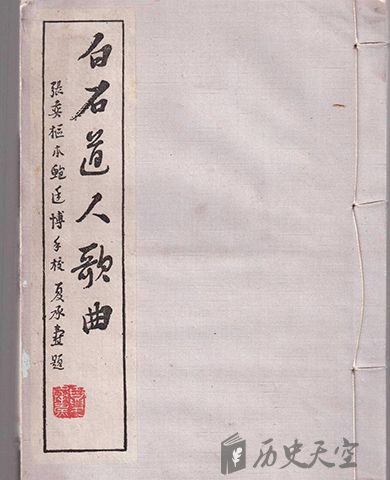 白石道人歌曲
張奕樞本鮑廷博手校 夏承燾題
历史天空